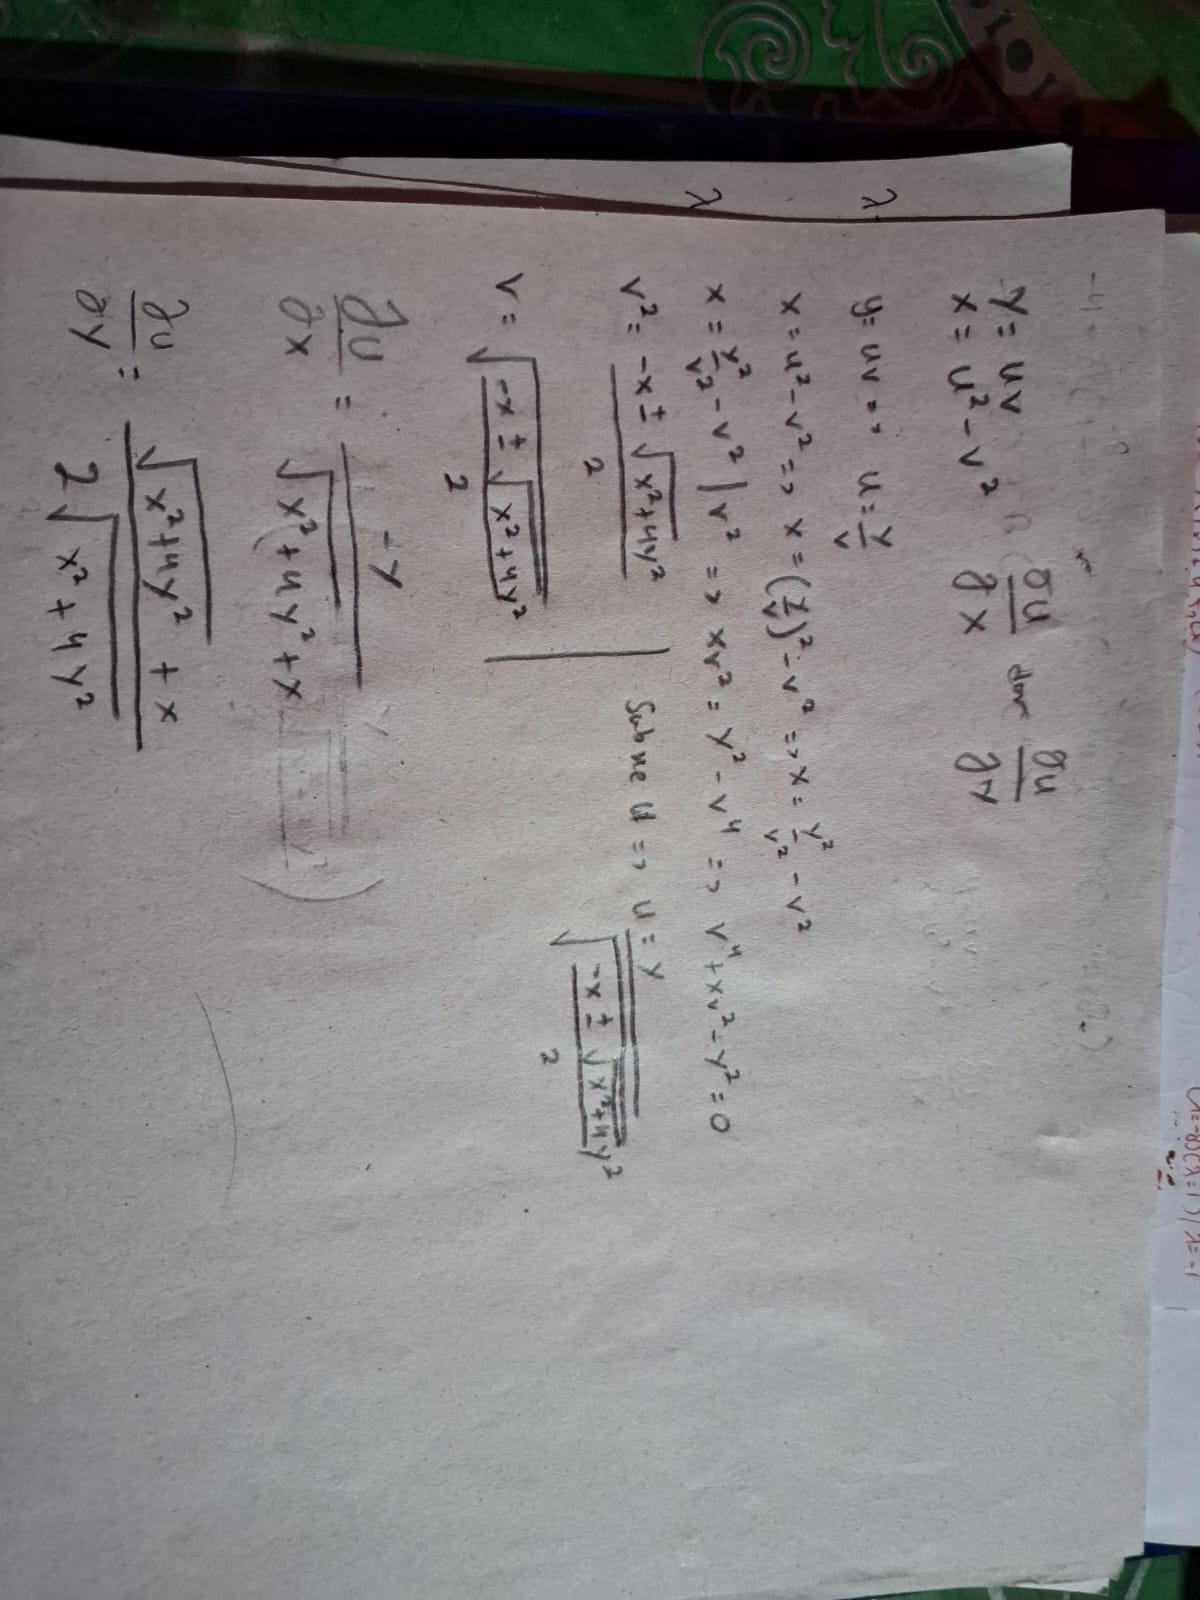 y = uv
x = u² - v²
∂u/∂x dan ∂u/∂y
y = uv => u = y/v
x = u² - v² => x = (y/v)² - v² => x = y²/v² - v²
x = y²/v² - v² | v² => xv² = y² - v⁴ => v⁴ + xv² - y² = 0
v² = (-x ± √(x²+4y²))/2
v = √((-x ± √(x²+4y²))/2)
u => u = y/√((-x ± √(x²+4y²))/2)
∂u/∂x = -y/√(x²+4y²+x
∂u/∂y = (√(x²+4y²) + x)/(2√(x²+4y²))
λ
λ
λ=-1